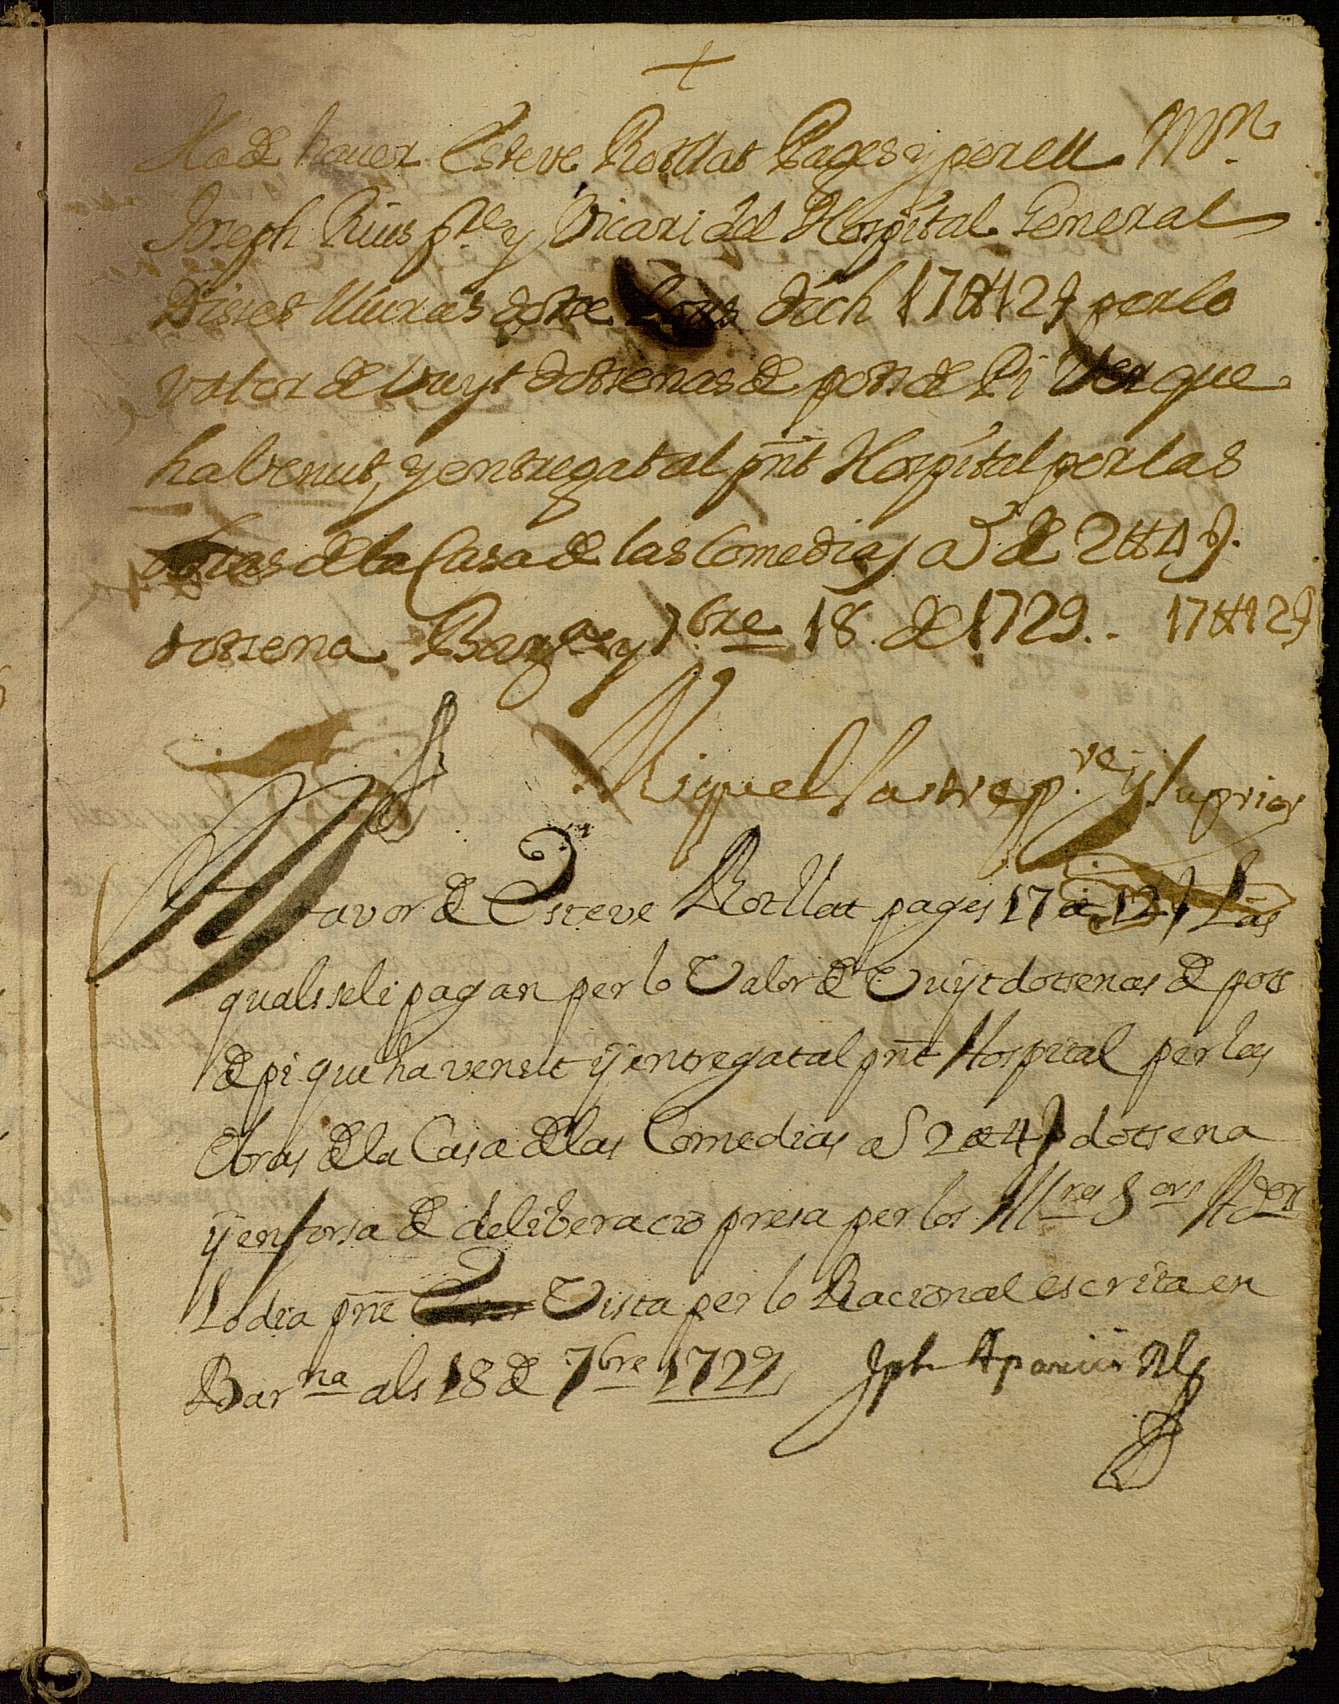 +
Ha de haver Esteve Rotllat Pages y per ell Mn.
Joseph Rius pre. y Vicari del Hospital General
Disset lliuras dotse sous dich 17 ₶ 12 ș per lo
valor de Vuyt dotsenas de posts de Pi Ver que
ha Venut, y entregat al pnt Hospital per las
obras de la Casa de las Comedias a ȓ de 2 ₶ 4 ș.
dotsena Barna. y 7bre 18. de 1729.. 17 ₶ 12 ș
Miquel Sastre pve. y Suprior
A favor de Esteve Rotllat pages 17 ₶ 12 ș Las
quals se li pagan per lo Valor de Vuyt dotsenas de pots
de pi que ha venut y entregat al pnt Hospital per las
Obras de la Casa de las Comedias a ȓ 2 ₶ 4 ș dotsena
y en forsa de deliberacio presa per los Mlres Sors Adors
Lo dia pnt Vista per lo Racional escrita en
Barna als 18 de 7bre 1729
Jph Aparici